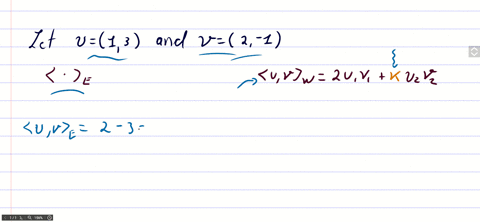 Let u=(1,3) and v=(2,-1)
< · >_E
<u,v>_W = 2u_1v_1 + K u_2v_2
<u,v>_E = 2 - 3 =